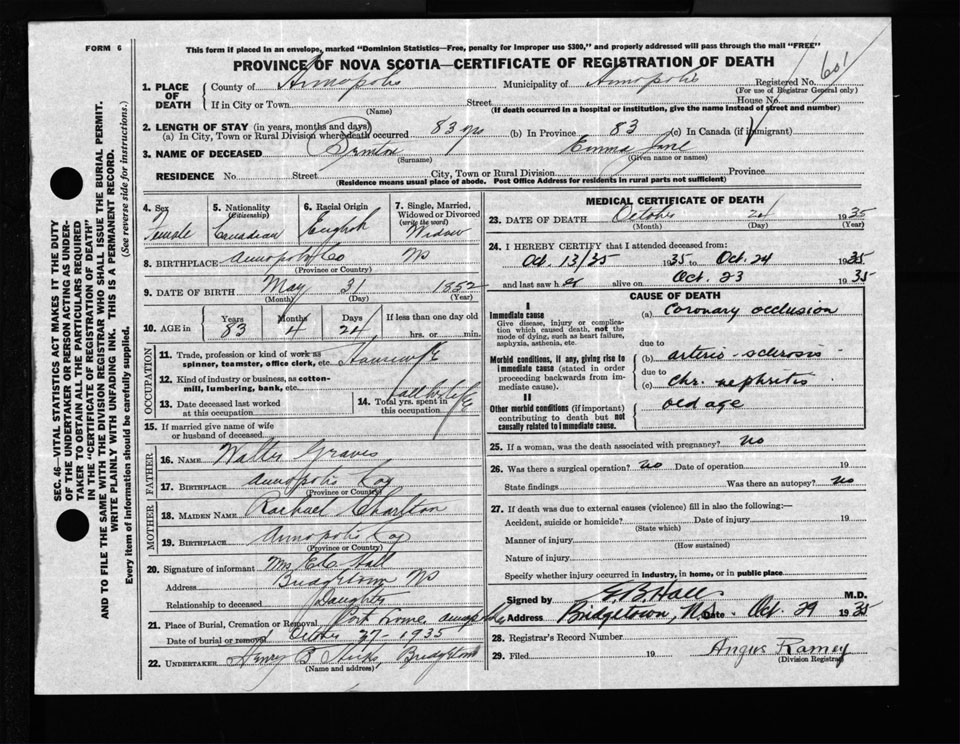 FORM 6
This form if placed in an envelope, marked "Dominion Statistics—Free, penalty for improper use $300," and properly addressed will pass through the mail "FREE"
PROVINCE OF NOVA SCOTIA—CERTIFICATE OF REGISTRATION OF DEATH
601
1. PLACE OF DEATH
County of Annapolis Municipality of Annapolis Registered No.
(For use of Registrar General only)
If in City or Town Street House No.
(Name) (If death occurred in a hospital or institution, give the name instead of street and number)
2. LENGTH OF STAY (in years, months and days)
(a) In City, Town or Rural Division where death occurred 83 yrs (b) In Province 83 (c) In Canada (if immigrant)
3. NAME OF DECEASED Emma Jane
(Surname) (Given name or names)
RESIDENCE No. Street City, Town or Rural Division Province
(Residence means usual place of abode. Post Office Address for residents in rural parts not sufficient)
4. Sex Female
5. Nationality (Citizenship) Canadian
6. Racial Origin English
7. Single, Married, Widowed or Divorced (write the word) Widow
8. BIRTHPLACE Annapolis Co NS
(Province or Country)
9. DATE OF BIRTH May 31 1852
(Month) (Day) (Year)
10. AGE in Years Months Days If less than one day old
83 4 24 hrs. or min.
OCCUPATION
11. Trade, profession or kind of work as spinner, teamster, office clerk, etc. Housewife
12. Kind of industry or business, as cotton-mill, lumbering, bank, etc.
13. Date deceased last worked at this occupation
14. Total yrs. spent in this occupation all life
15. If married give name of wife or husband of deceased
FATHER
16. NAME Walter Graves
17. BIRTHPLACE Annapolis Co
(Province or Country)
MOTHER
18. MAIDEN NAME Rachael Charlton
19. BIRTHPLACE Annapolis Co
(Province or Country)
20. Signature of informant Mrs Ed Hall
Address Bridgetown NS
Relationship to deceased Daughter
21. Place of Burial, Cremation or Removal
Date of burial or removal October 27-1935
22. UNDERTAKER Henry B Hicks, Bridgetown
(Name and address)
MEDICAL CERTIFICATE OF DEATH
23. DATE OF DEATH October 24 1935
(Month) (Day) (Year)
24. I HEREBY CERTIFY that I attended deceased from:
Oct. 13/35 1935 to Oct. 24 1935
and last saw her alive on Oct. 23 1935
CAUSE OF DEATH
I
Immediate cause
Give disease, injury or complication which caused death, not the mode of dying, such as heart failure, asphyxia, asthenia, etc.
(a) Coronary occlusion
due to
Morbid conditions, if any, giving rise to immediate cause (stated in order proceeding backwards from immediate cause).
(b) arterio-sclerosis
due to
(c) Chr. nephritis
II
Other morbid conditions (if important) contributing to death but not causally related to immediate cause.
old age
25. If a woman, was the death associated with pregnancy? no
26. Was there a surgical operation? no Date of operation 19
State findings Was there an autopsy? no
27. If death was due to external causes (violence) fill in also the following:—
Accident, suicide or homicide? Date of injury 19
(State which)
Manner of injury
(How sustained)
Nature of injury
Specify whether injury occurred in industry, in home, or in public place
Signed by E. B. Hall M.D.
Address Bridgetown, N.S. Date Oct. 29 1935
28. Registrar's Record Number
29. Filed 19 Angus Ramey
(Division Registrar)
SEC. 46—VITAL STATISTICS ACT MAKES IT THE DUTY
OF THE UNDERTAKER OR PERSON ACTING AS UNDER-
TAKER TO OBTAIN ALL THE PARTICULARS REQUIRED
IN THE "CERTIFICATE OF REGISTRATION OF DEATH"
AND TO FILE THE SAME WITH THE DIVISION REGISTRAR WHO SHALL ISSUE THE BURIAL PERMIT.
WRITE PLAINLY WITH UNFADING INK. THIS IS A PERMANENT RECORD.
Every item of information should be carefully supplied. (See reverse side for instructions.)